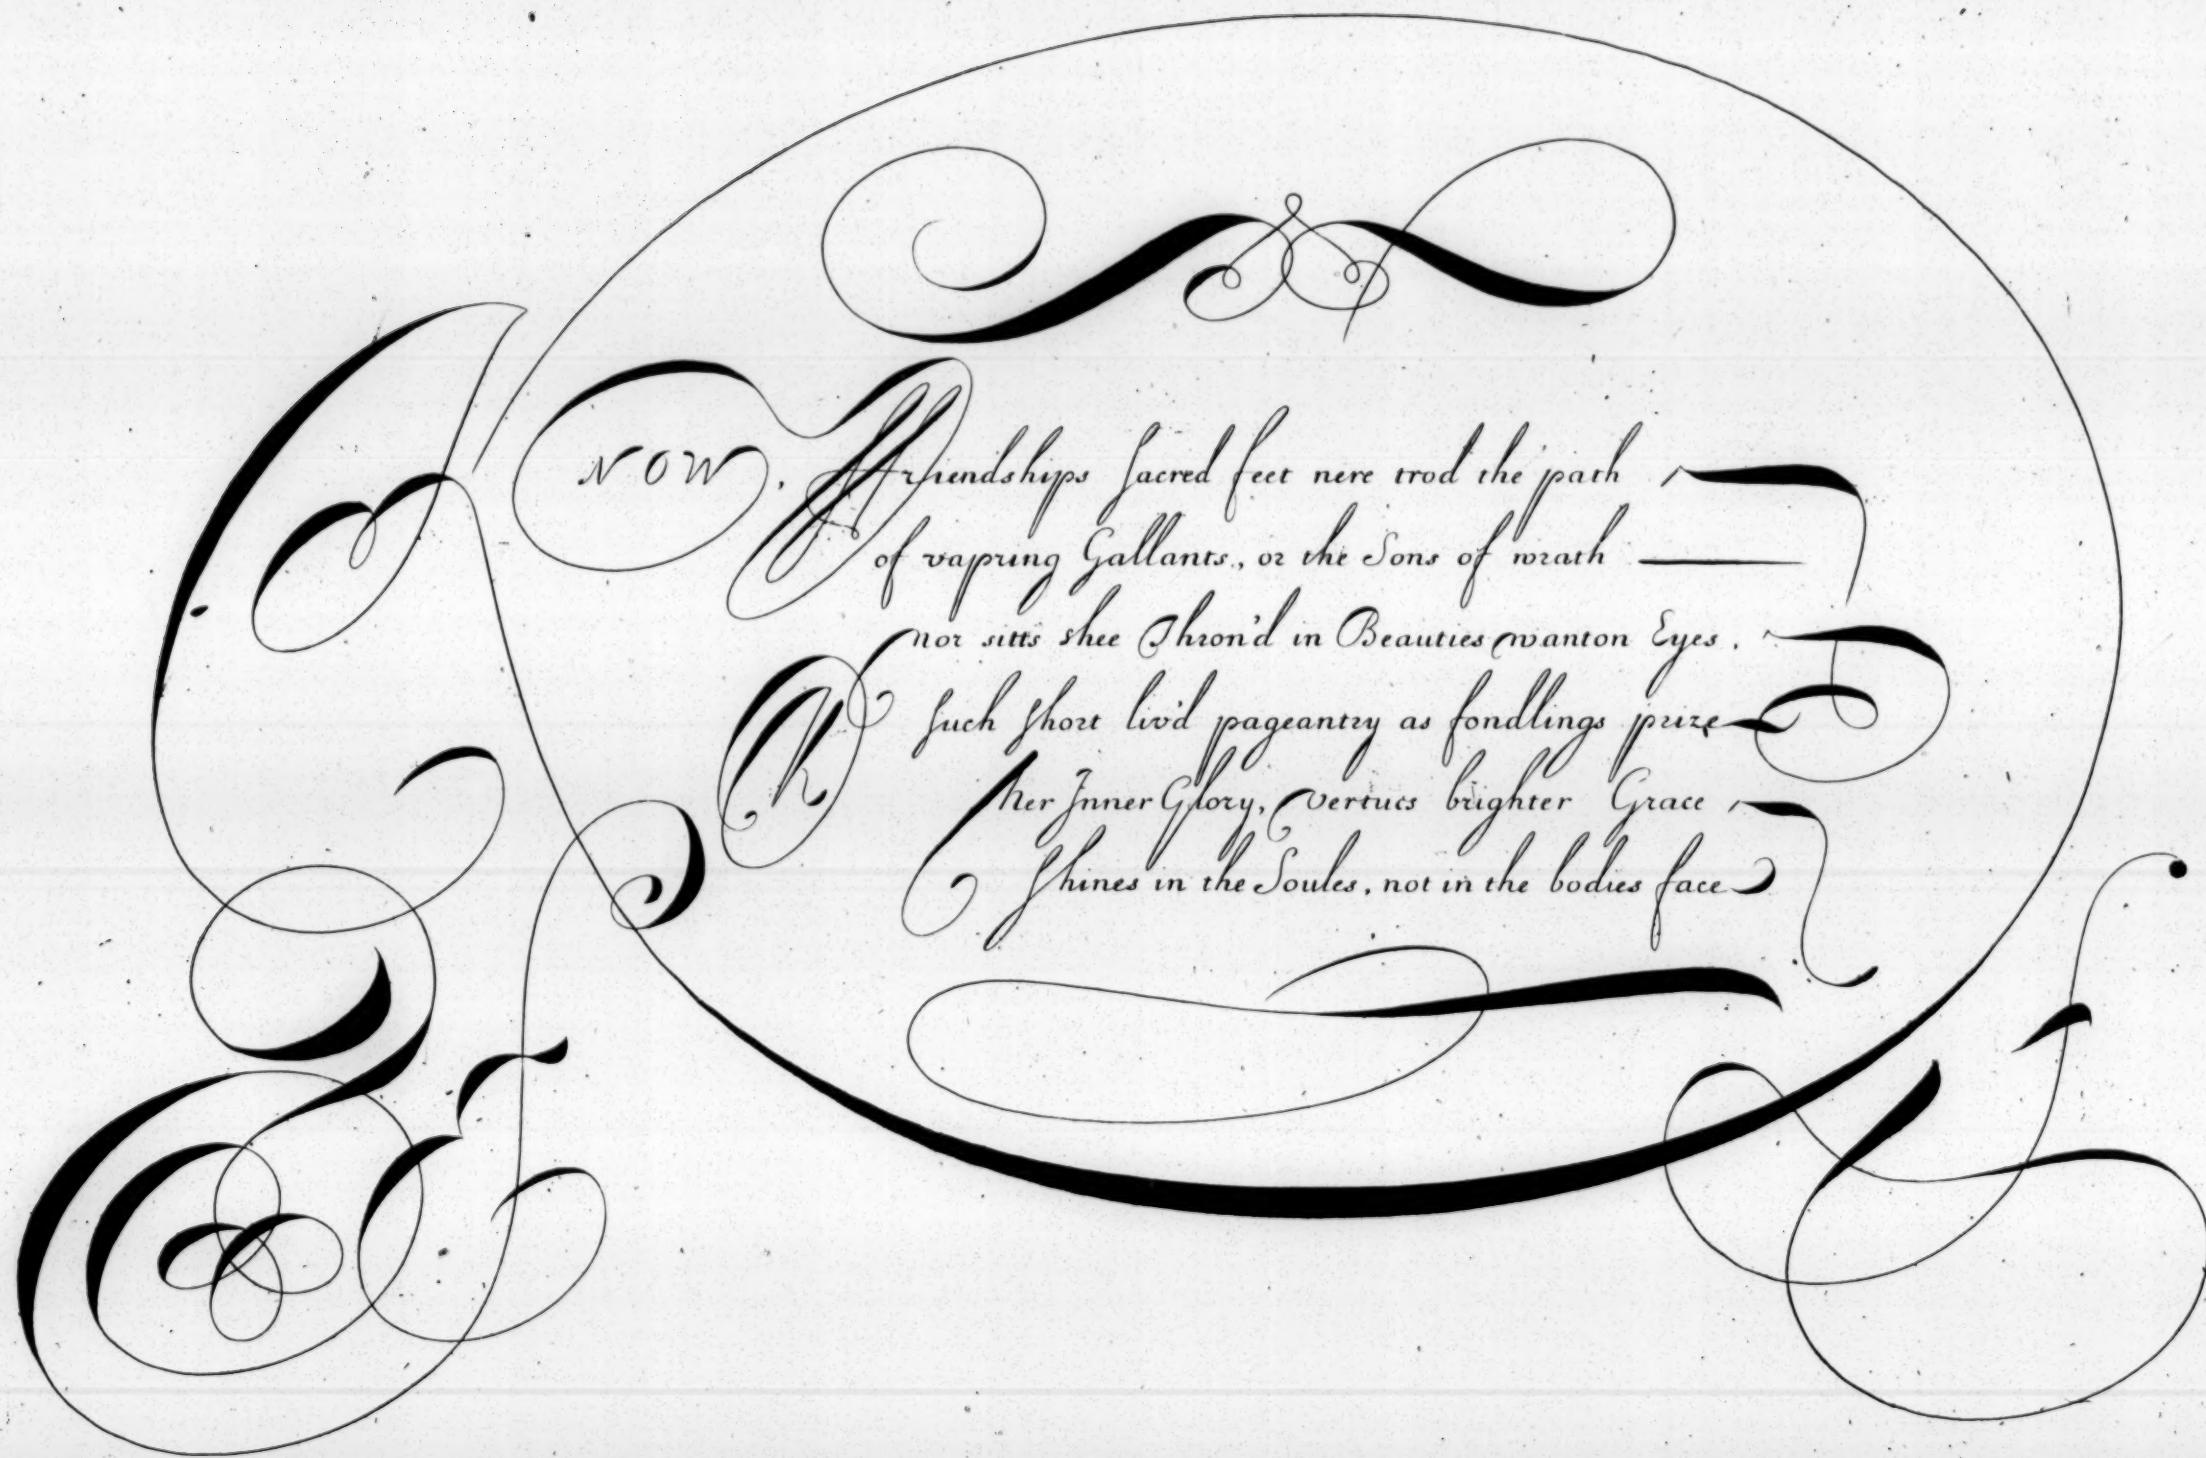 NOW. Friendships sacred feet nere trod the path
of vapring Gallants, or the Sons of wrath
nor sitts shee Thron'd in Beauties wanton Eyes.
such short liv'd pageantry as fondlings prize
her Inner Glory, vertues brighter Grace
shines in the Soules, not in the bodies face